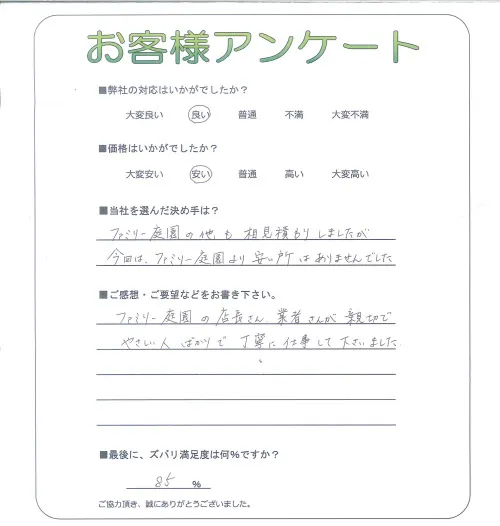 お客様アンケート
■弊社の対応はいかがでしたか?
大変良い 良い 普通 不満 大変不満
■価格はいかがでしたか?
大変安い 安い 普通 高い 大変高い
■当社を選んだ決め手は?
ファミリー庭園の他も相見積もりしましたが
今回は、ファミリー庭園より安い所はありませんでした
■ご感想・ご要望などをお書き下さい。
ファミリー庭園の店長さん 業者さんが親切で
やさしい人ばかりで丁寧に仕事して下さいました
■最後に、ズバリ満足度は何%ですか?
85 %
ご協力頂き、誠にありがとうございました。